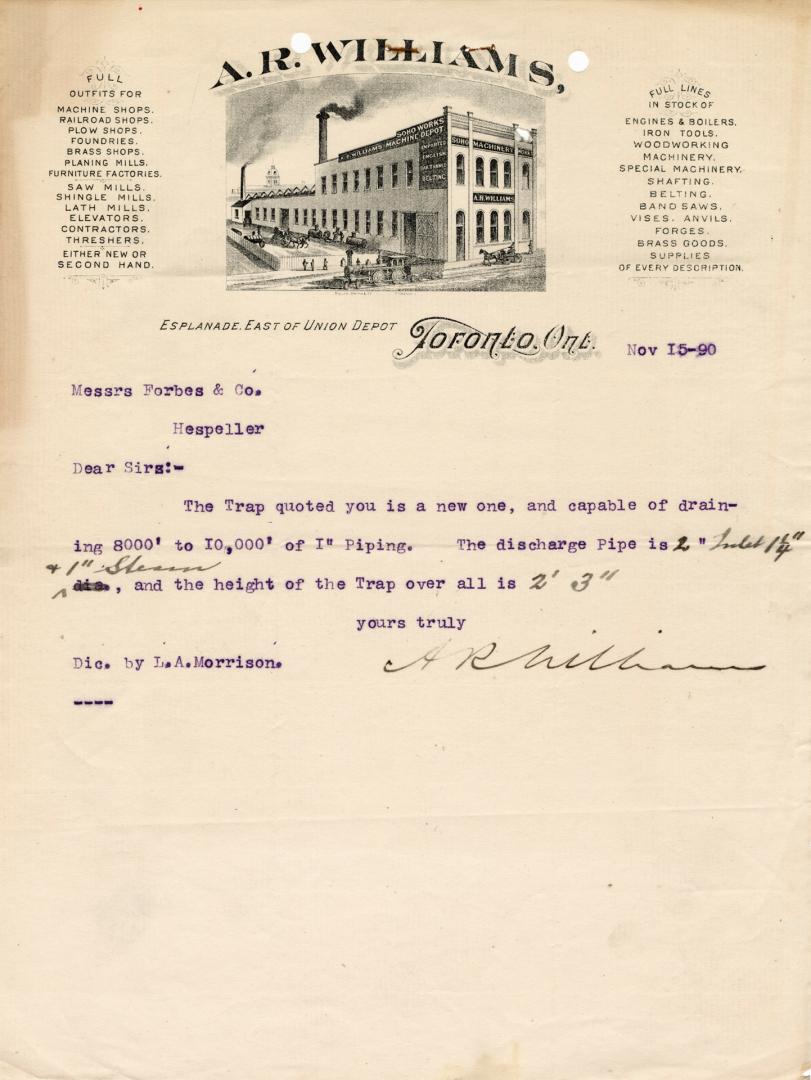 A. R. WILLIAMS,
FULL
OUTFITS FOR
MACHINE SHOPS.
RAILROAD SHOPS.
PLOW SHOPS.
FOUNDRIES.
BRASS SHOPS.
PLANING MILLS.
FURNITURE FACTORIES.
SAW MILLS.
SHINGLE MILLS.
LATH MILLS.
ELEVATORS.
CONTRACTORS.
THRESHERS.
EITHER NEW OR
SECOND HAND.
SOHO WORKS
A.R. WILLIAMS MACHINE DEPOT
IMPORTED
ENGLISH
OAK TANNED
BELTING
SOHO MACHINERY WORKS
A.R. WILLIAMS
FULL LINES
IN STOCK OF
ENGINES & BOILERS.
IRON TOOLS.
WOODWORKING
MACHINERY.
SPECIAL MACHINERY.
SHAFTING.
BELTING.
BAND SAWS.
VISES. ANVILS.
FORGES.
BRASS GOODS.
SUPPLIES
OF EVERY DESCRIPTION.
ESPLANADE. EAST OF UNION DEPOT Toronto, Ont. Nov I5-90
Messrs Forbes & Co.
Hespeller
Dear Sirs:-
The Trap quoted you is a new one, and capable of drain-
ing 8000' to I0,000' of I" Piping. The discharge Pipe is 2" Inlet 1¼"
+ 1" Steam
dia., and the height of the Trap over all is 2' 3"
yours truly
Dic. by L.A.Morrison. A R Williams
----